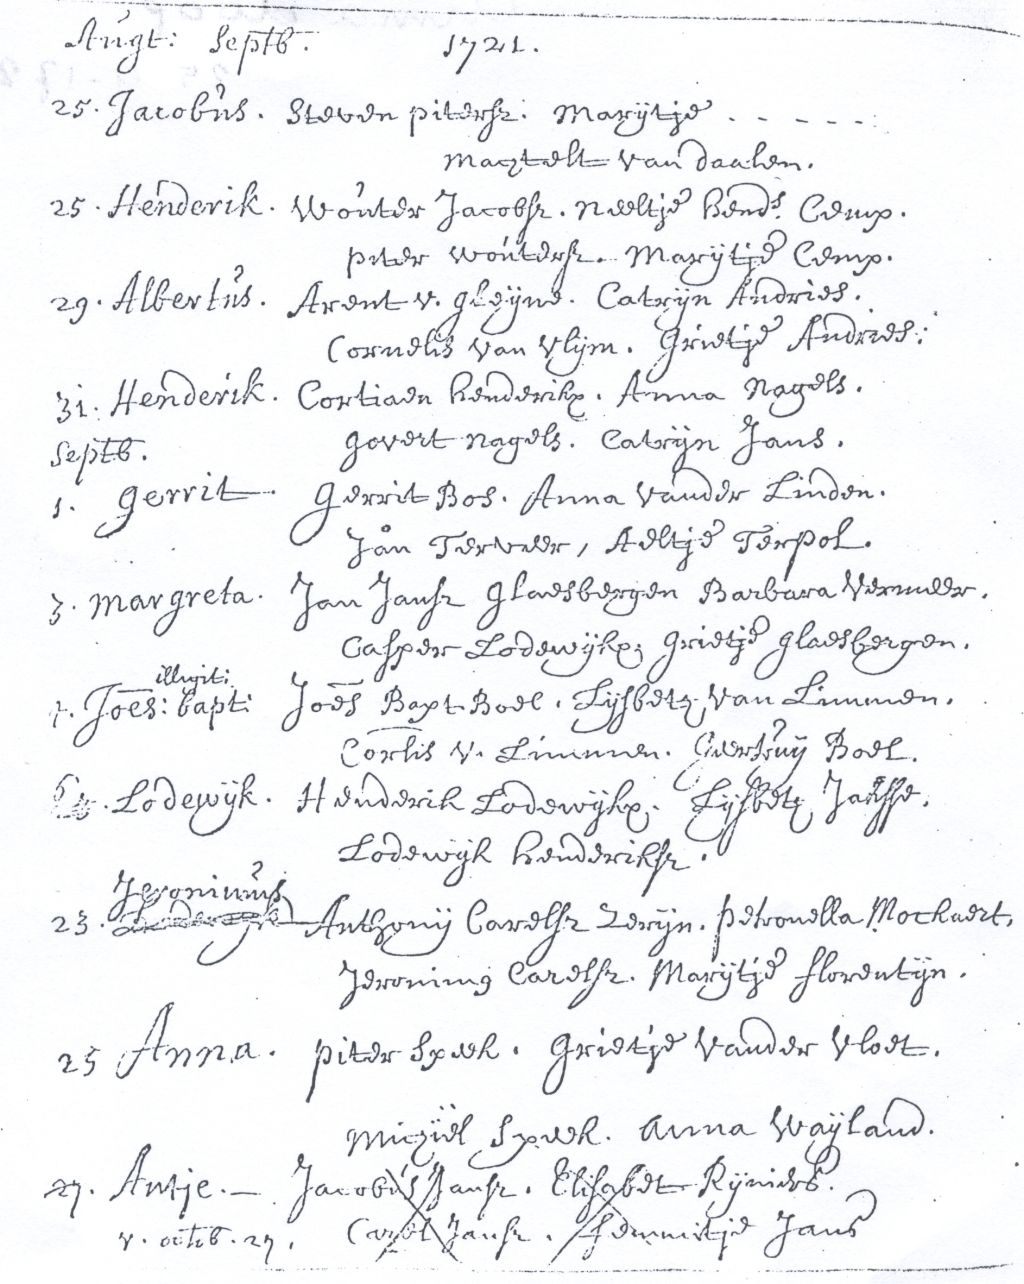 Augt: Septb. 1721.
25. Jacobus. Steven pitersz. Marijtje . - - - - .
Machtelt van daalen.
25. Henderik. Wouter Jacobsz. Neeltje hends. Cemp.
piter woutersz. Marijtje Cemp.
29. Albertus. Arent v. gleyne. Catrijn Andries.
Cornelis van vlijm. Grietje Andries:
31. Henderik. Cortiaen henderikx. Anna Nagels.
Septb. govert nagels. Catrijn Jans.
1. gerrit. Gerrit Bos. Anna vander Linden.
Jan Terveer, Aeltje Terpol.
3. margreta. Jan Jansz glaesbergen Barbara Vermeer.
Casper Lodewijkx; grietje glaesbergen.
illigit:
7. Joes: bapt: Joes Bapt Boel. Lijsbeth van Limmen.
Corlis v. Limmen. Geertruij Boel.
Lodewijk. Henderik Lodewijkx. Lijsbeth Jansse.
Lodewijk henderiksz.
Jeronimus
23. Anthonij Carelsz Zerijn. petronella Mochaert,
Jeronimus Carelsz. Marijtje florentijn.
25 Anna. piter Speek. Grietje vander vloet.
Michiel Speek. Anna Waijland.
27. Antje. — Jacobus Jansz. Elisabet Rijniers.
v. octob. 27. Carel Jansz. femmitje Jans